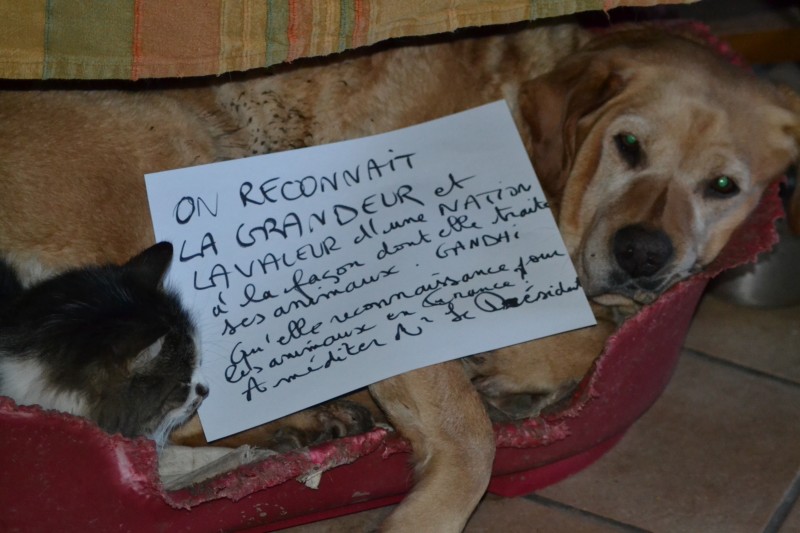 ON RECONNAIT
LA GRANDEUR et
LA VALEUR d'une NATION
à la façon dont elle traite
ses animaux. GANDHi
Qu'elle reconnaissance pour
les animaux en France ?
A méditer Mr Le Président